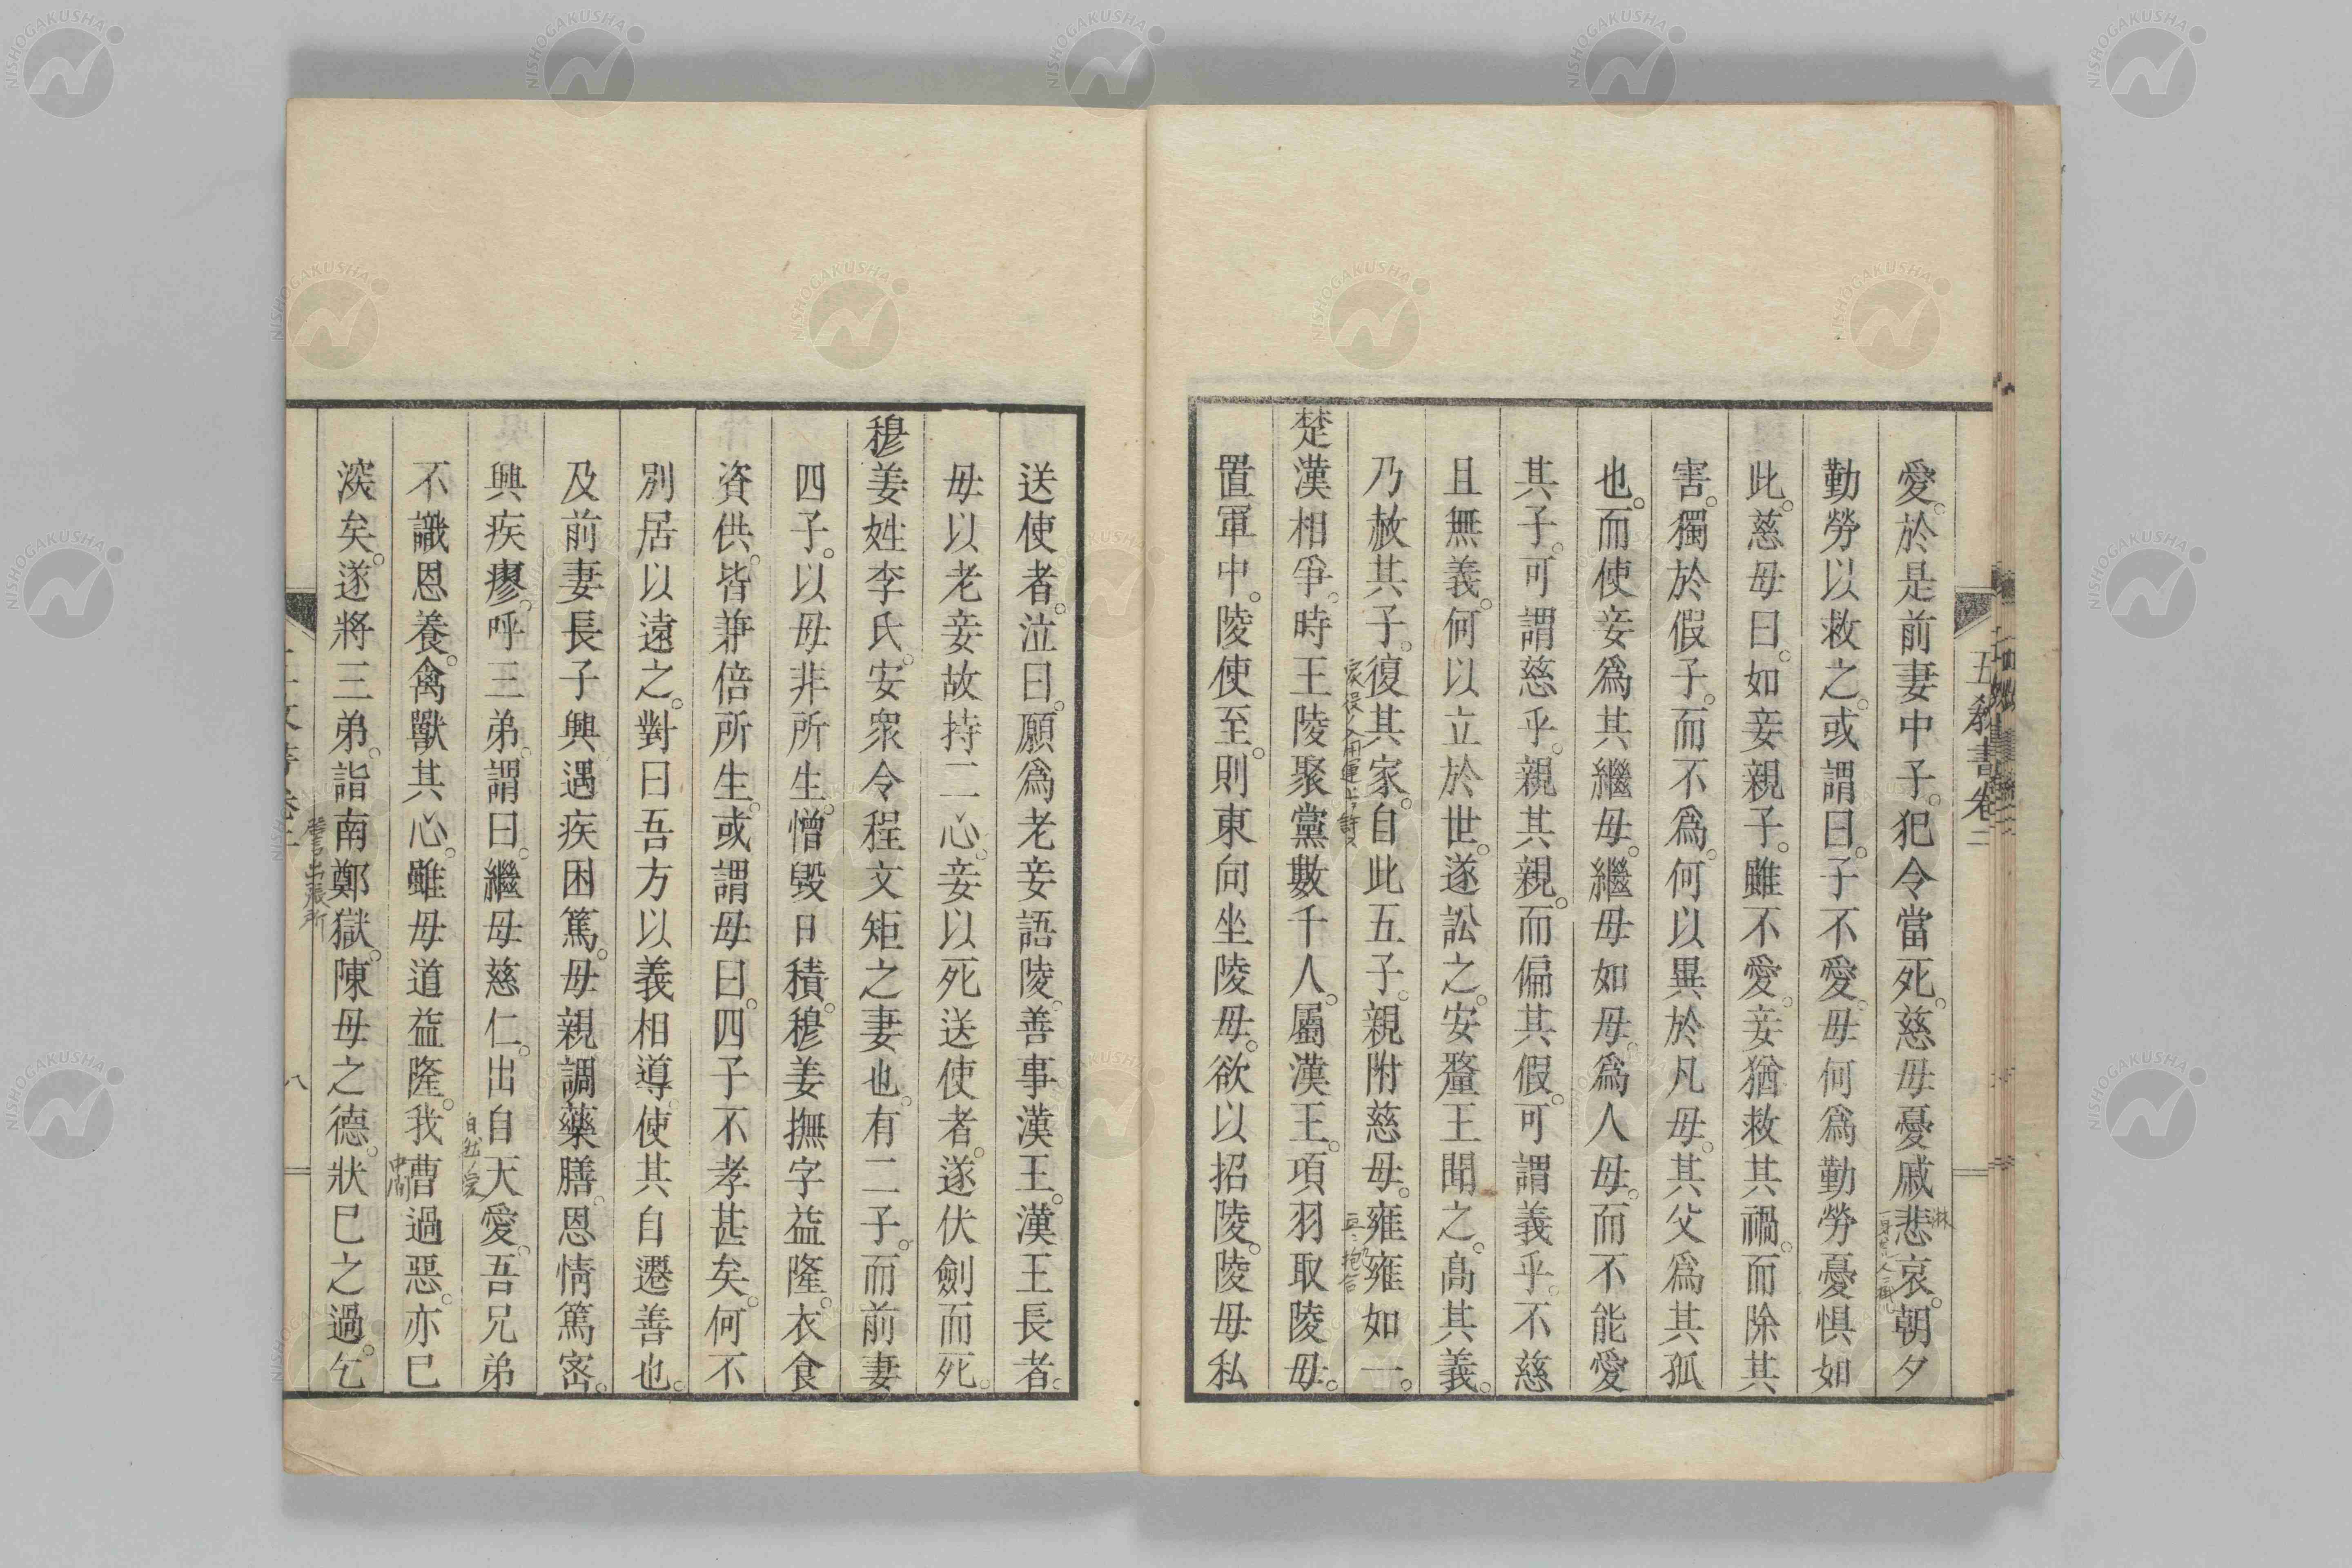 愛。於是前妻中子。犯令當死。慈母憂戚悲哀。朝夕
勤勞以救之。或謂曰。子不愛。母何爲勤勞憂惧如
此。慈母曰。如妾親子。雖不愛。妾猶救其禍。而除其
害。獨於假子。而不爲。何以異於凡母。其父爲其孤
也。而使妾爲其繼母。繼母如母。爲人母。而不能愛
其子。可謂慈乎。親其親。而偏其假。可謂義乎。不慈
且無義。何以立於世。遂訟之。安釐王聞之。高其義。
乃赦其子。復其家。自此五子。親附慈母。雍雍如一。
楚漢相爭。時王陵聚黨數千人。屬漢王。項羽取陵母。
置軍中。陵使至。則東向坐陵母。欲以招陵。陵母私
送使者。泣曰。願爲老妾語陵。善事漢王。漢王長者。
毋以老妾故持二心。妾以死送使者。遂伏劍而死。
穆姜姓李氏。安衆令程文矩之妻也。有二子。而前妻
四子。以母非所生。憎毀日積。穆姜撫字益隆。衣食
資供。皆兼倍所生。或謂母曰。四子不孝甚矣。何不
別居以遠之。對曰吾方以義相導。使其自遷善也。
及前妻長子興遇疾困篤。母親調藥膳。恩情篤密。
興疾瘳。呼三弟。謂曰。繼母慈仁。出自天愛。吾兄弟
不識恩養。禽獸其心。雖母道益隆。我曹過惡。亦巳
深矣。遂將三弟。詣南鄭獄。陳母之德。狀巳之過。乞
五種遺規 卷二
八
NISHOGAKUSHA